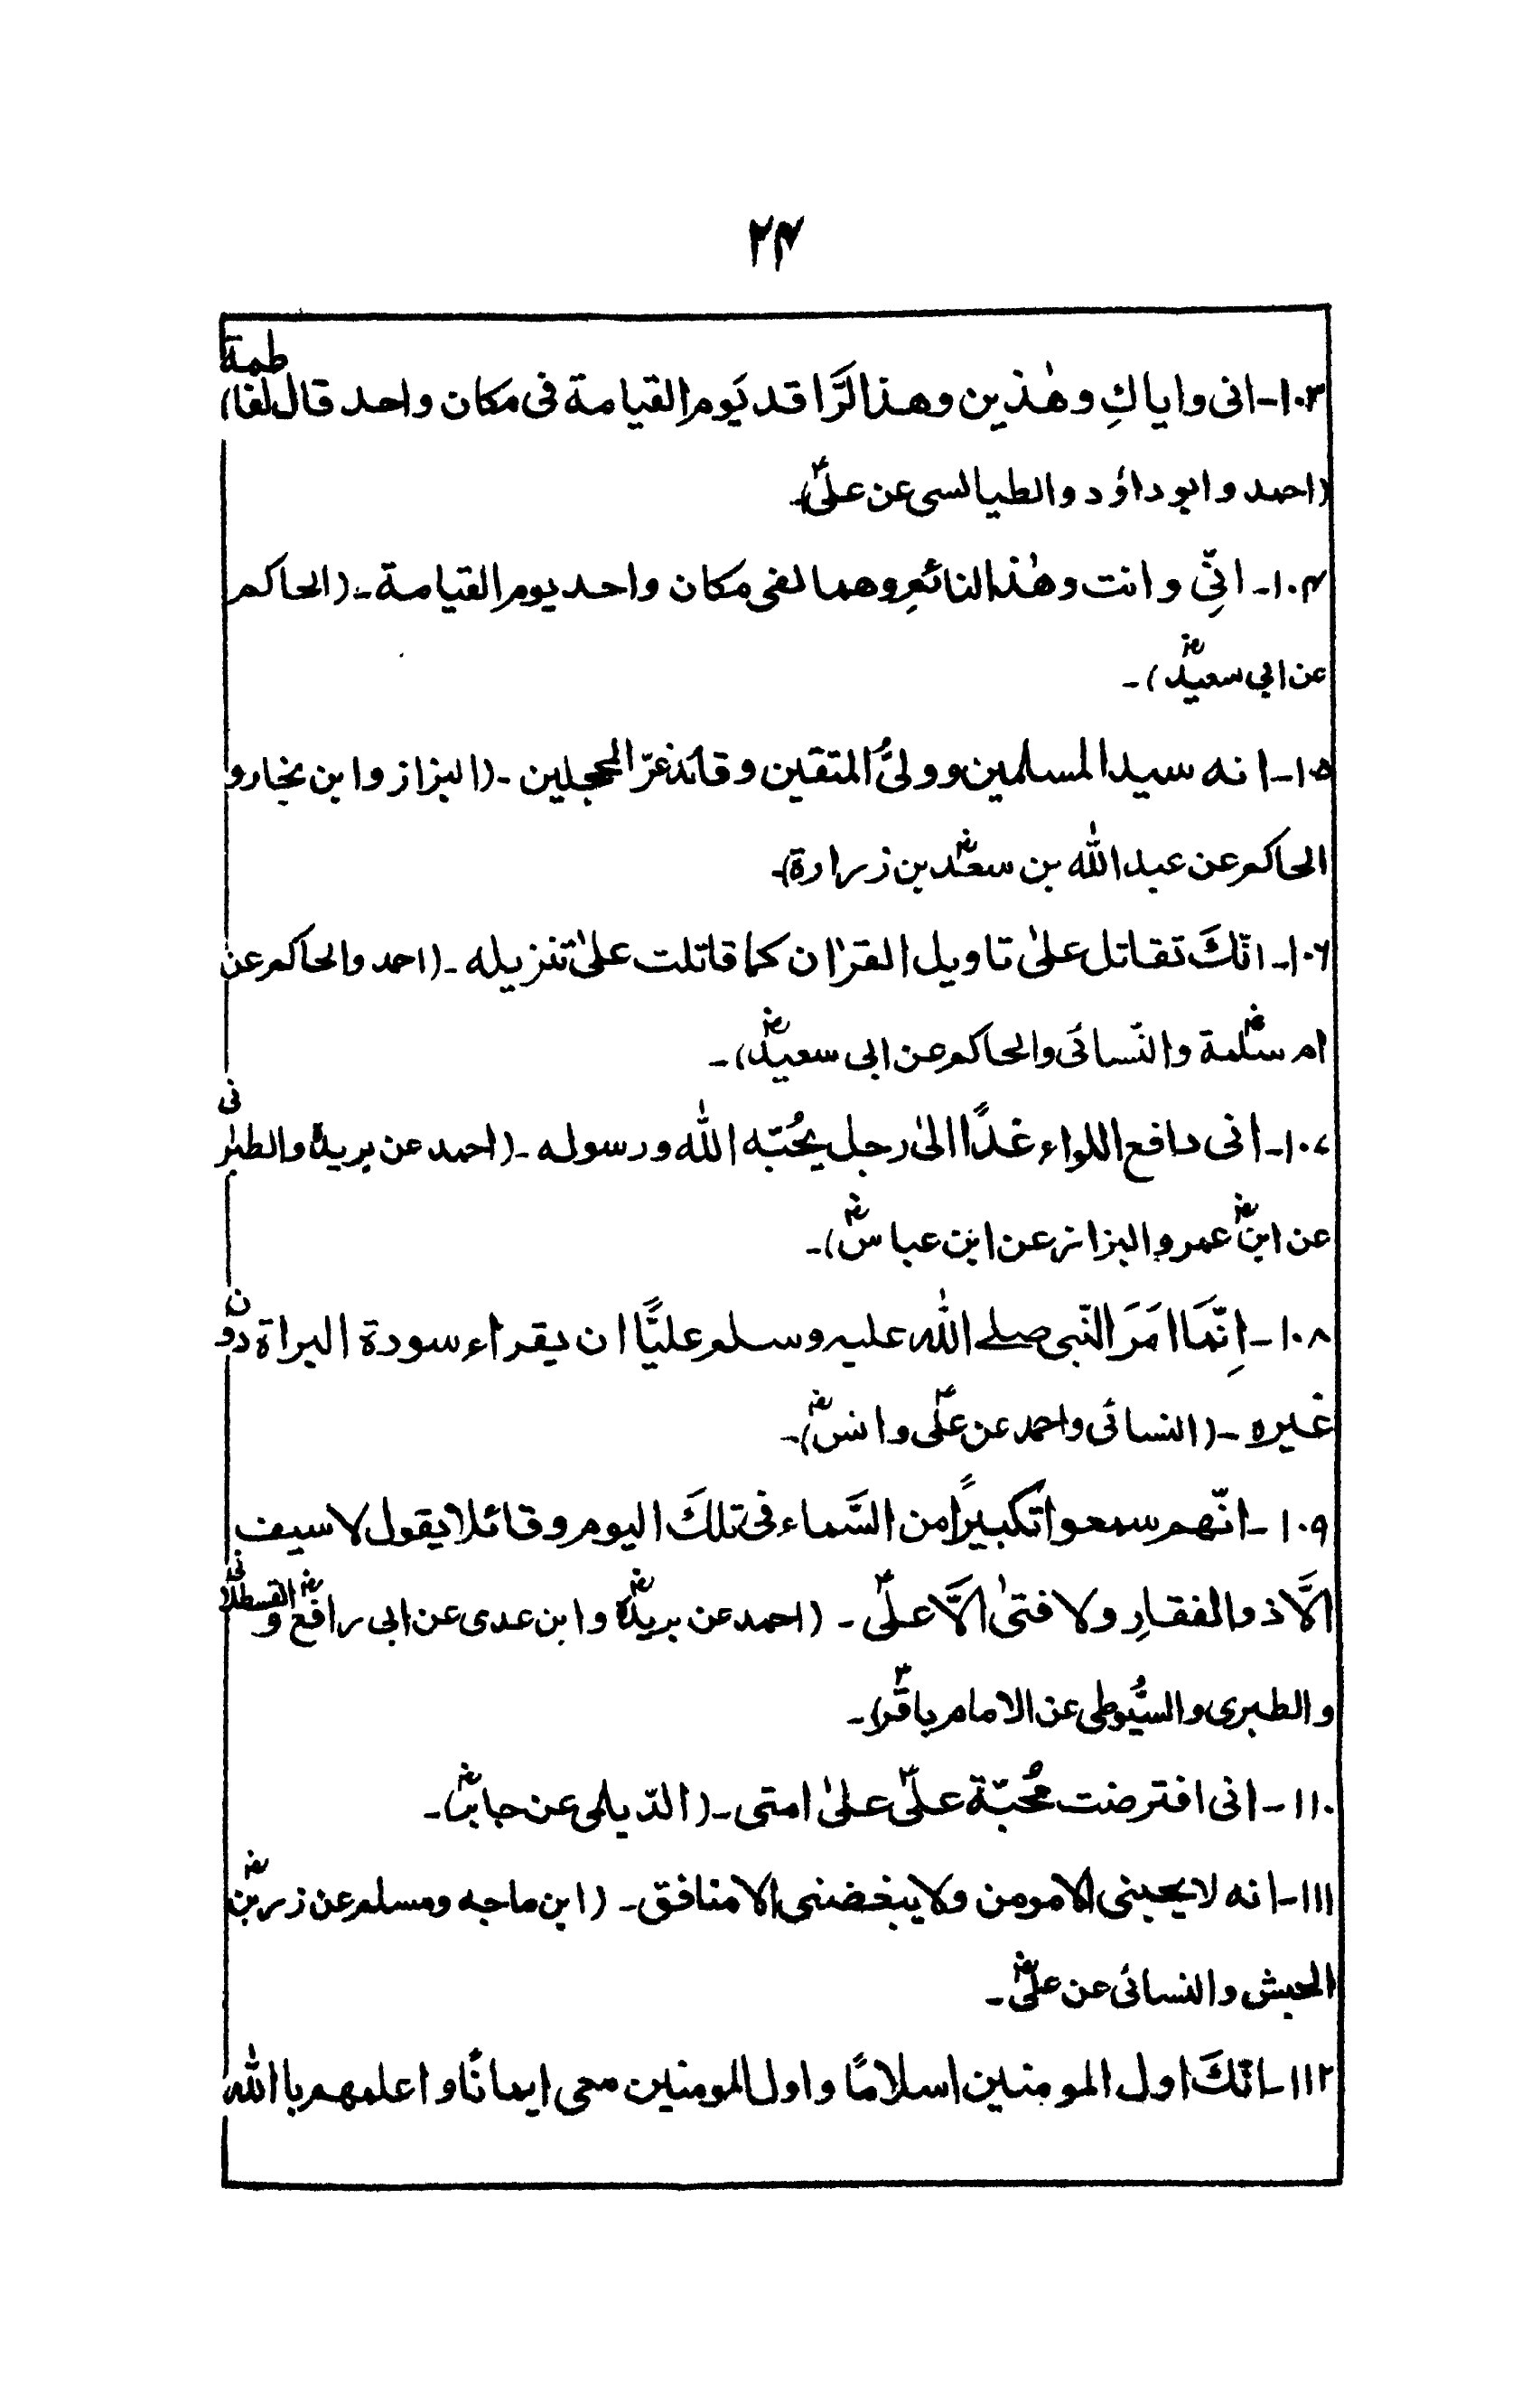 ۲۴
۱۰۳-انی وایاكِ وھٰذین وھذا لَرَّاقد یَوم القیامة فی مکان واحد قال لفاطمة)
(احمد و ابو داؤد والطیالسی عن علیؑ)۔
۱۰۴- انّیِ و انت وھٰذا النائمِ وھما لفی مکان واحد یوم القیامة۔(الحاکم
عن ابی سعیدؓ)۔
۱۰۵-انه سید المسلمین و ولیُّ المتقین و قائد غرّ المحجلین ۔(البزاز وابن نجار و
الحاکم عن عبد اللّٰه بن سعدؓ بن زرارة)۔
۱۰۶-انّكَ تقاتل علیٰ تاویل القرٰان کما قاتلت علیٰ تنزیله ۔(احمد والحاکم عن
ام سلمةؓ والنّسائی والحاکم عن ابی سعیدؓ)۔
۱۰۷-انی دافع اللواء غداً الیٰ رجل یُحبّه اللّٰه ورسوله ۔(احمد عن بریدةؓ والطبرٰنی
عن ابنؓ عمر و البزاز عن ابن عباسؓ)۔
۱۰۸-اِنّمَا امَرَ النّبی صلے اللّٰه علیه وسلم علیًّا ان یقراء سورة البراة دون
غیره ۔(النسائی واحمد عن علیؑ وانسؓ)۔
۱۰۹-انّھم سمعوا تکبیراً من السَّماء فی تلكَ الیوم وقائلا یقول لا سیف
الَّا ذو الفقارِ ولا فتیٰ الَّا علیؑ ۔ (احمد عن بریدةؓ وابن عدی عن ابی رافعؓ والقسطلانی
والطبری والسُّیوطی عن الامام باقرؑ)۔
۱۱۰-انی افترضت مُحبّة علیؑ علیٰ امتی۔(الدّیلمی عن جابرؓ)۔
۱۱۱-انه لا یحبنی الا مومن ولا یبغضنی الا منافق۔ (ابن ماجه ومسلم عن زر بنؓ
الحبش والنسائی عن علیؓ۔
۱۱۲-انّكَ اول المومنین اسلامًا و اول المومنین معی ایمانًا و اعلمھم با اللّٰه